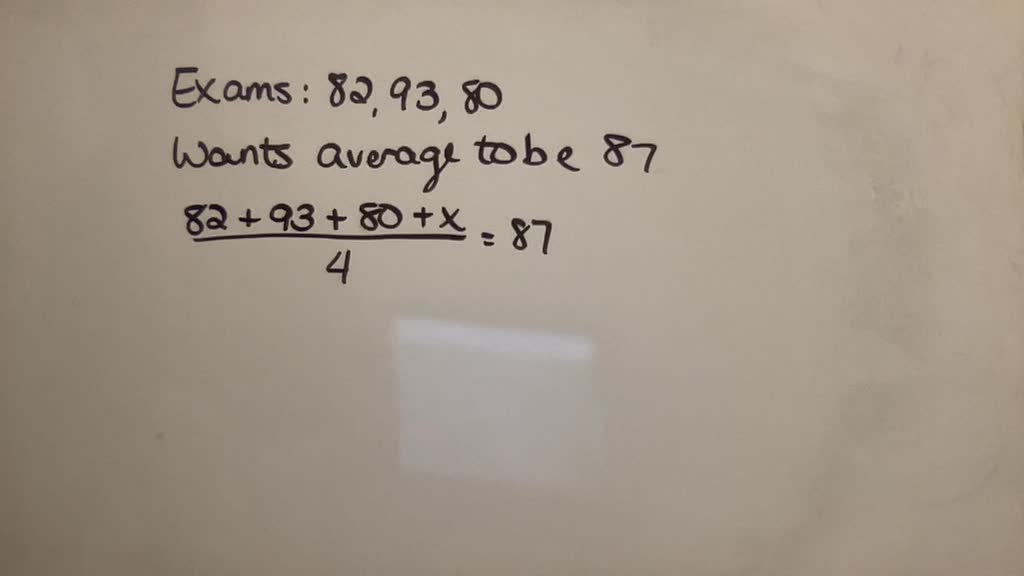 Exams: 82, 93, 80
Wants average to be 87
82 + 93 + 80 + x
= 87
4